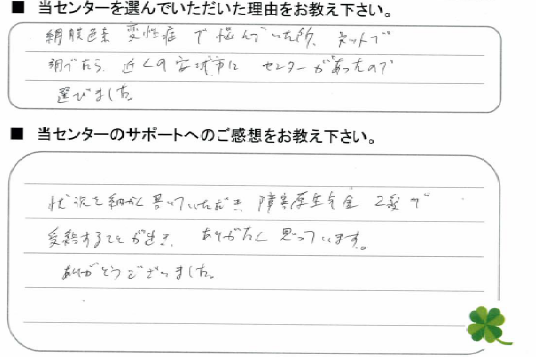 ■ 当センターを選んでいただいた理由をお教え下さい。
網膜色素変性症で悩んでいた所、ネットで
調べたら、近くの安城市にセンターがあったので
選びました。
■ 当センターのサポートへのご感想をお教え下さい。
状況を細かく書いていただき、障害厚生年金2級が
受給することが出き、ありがたく思っています。
ありがとうございました。